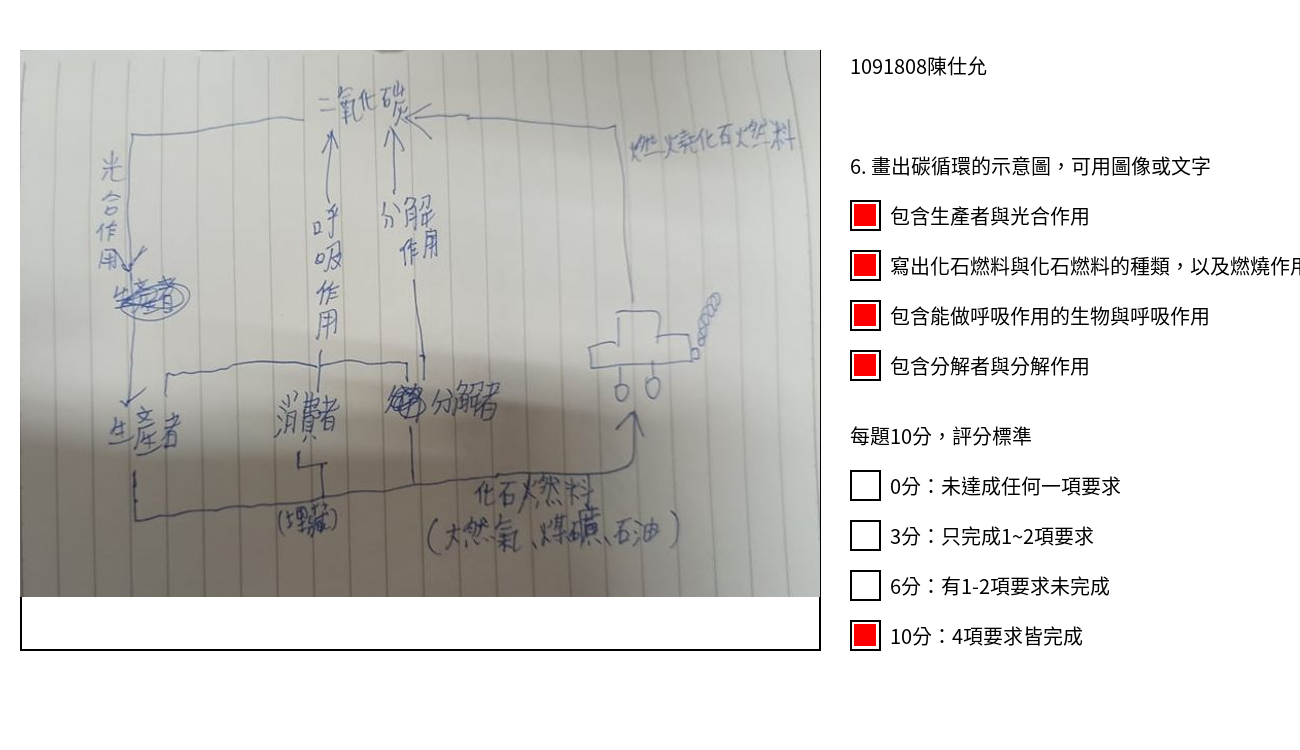 二氧化碳
光合作用
呼吸作用
分解作用
燃燒化石燃料
生產者
消費者
分解者
(埋藏)
化石燃料
(大然氣、煤礦、石油)
1091808陳仕允
6. 畫出碳循環的示意圖，可用圖像或文字
包含生產者與光合作用
寫出化石燃料與化石燃料的種類，以及燃燒作用
包含能做呼吸作用的生物與呼吸作用
包含分解者與分解作用
每題10分，評分標準
0分：未達成任何一項要求
3分：只完成1~2項要求
6分：有1-2項要求未完成
10分：4項要求皆完成